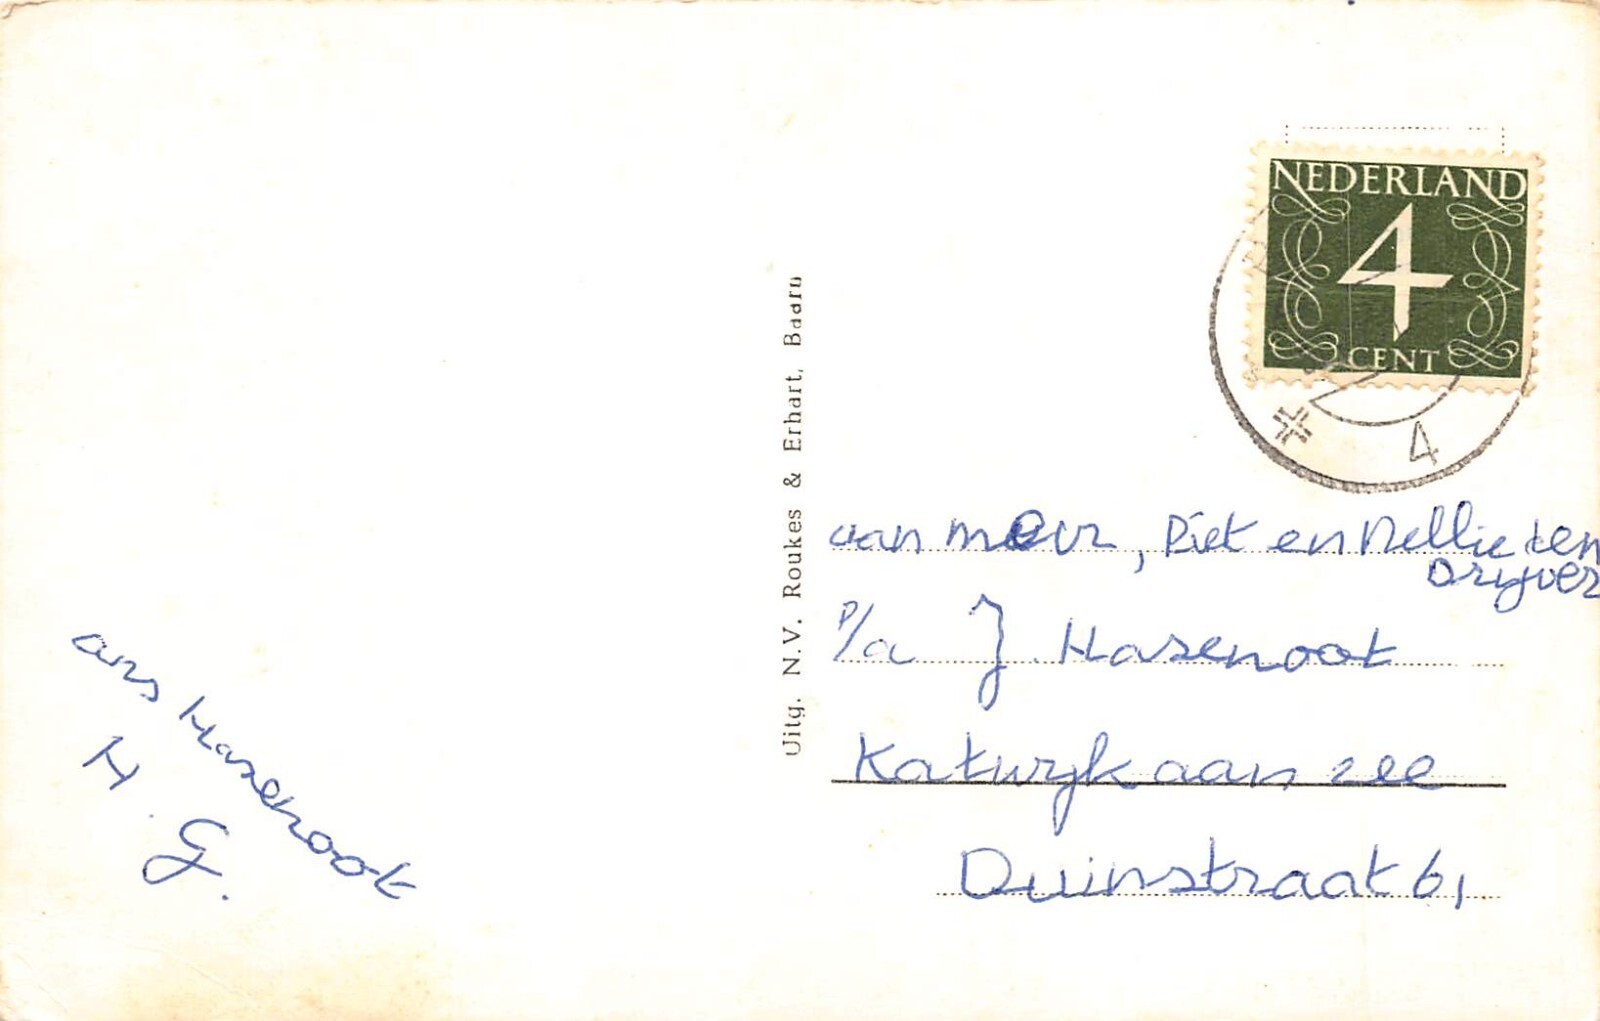 ans Hasenoot
H.G.
Uitg. N.V. Roukes & Erhart, Baarn
NEDERLAND
4
CENT
4
aan mevr, Piet en Nellie den
Drijver
P/a J Hasenoot
Katwijk aan zee
Duinstraat 61